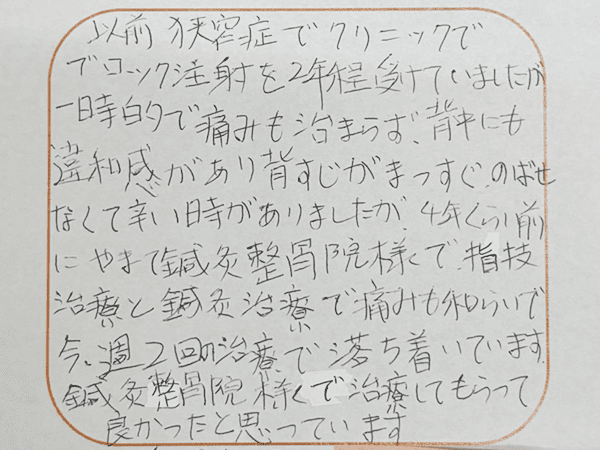 以前 狭窄症でクリニックで
でロック注射を2年程受けていましたが
一時的で痛みも治まらず、背中にも
違和感があり背すじがまっすぐ、のばせ
なくて辛い時がありましたが、4年くらい前
に やまて鍼灸整骨院様で、指技
治療と鍼灸治療で痛みも和らいで
今、週2回の治療で落ち着いています。
鍼灸整骨院 様で治療してもらって
良かったと思っています